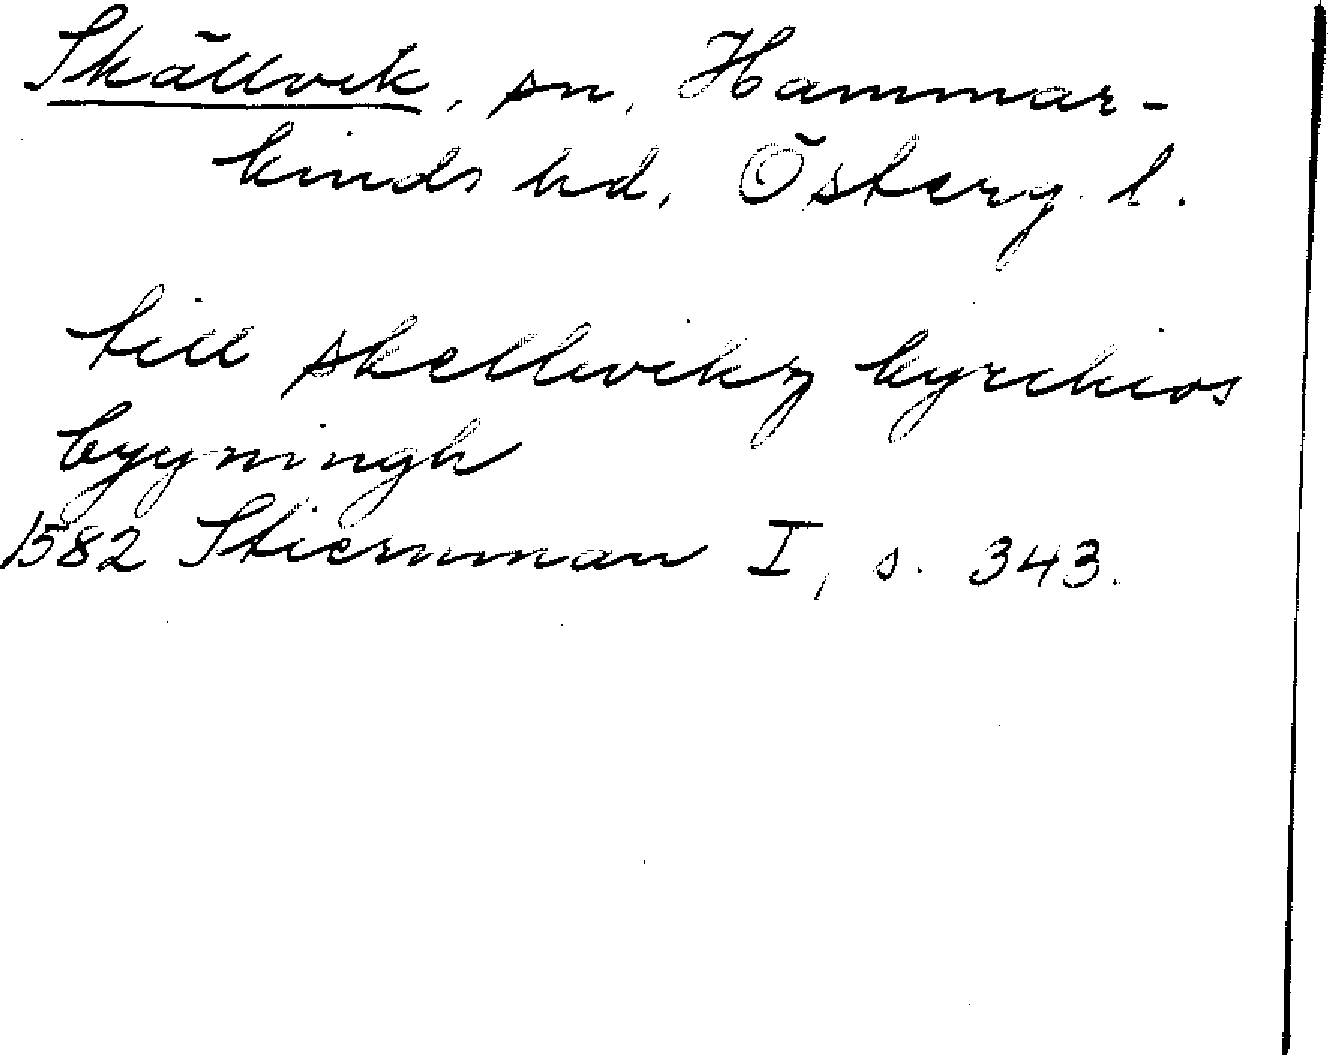 Skällvik, sn, Hammar-
kinds hd, Österg. l.
till skellwikz kyrckios
byyningh
1582 Stiernman I, s. 343.